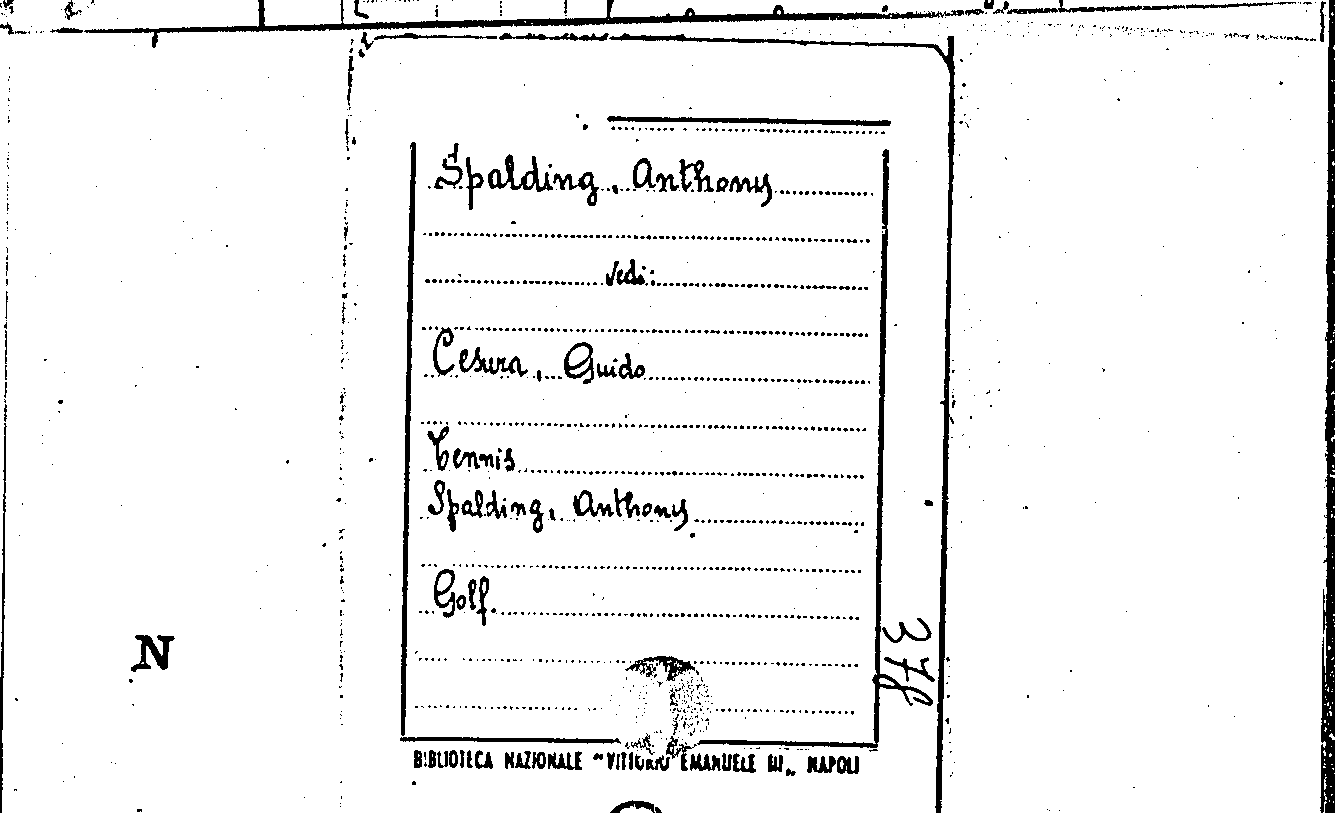 Spalding, Anthony
Vedi:
Cesura, Guido
Tennis
Spalding, Anthony
Golf.
378
N
BIBLIOTECA NAZIONALE "VITTORIO EMANUELE III„ NAPOLI